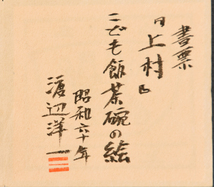 書票
日上村
こども飯茶碗の絵
昭和六十年
渡辺洋一